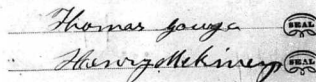 Thomas Gouge SEAL
Henry McKinney SEAL